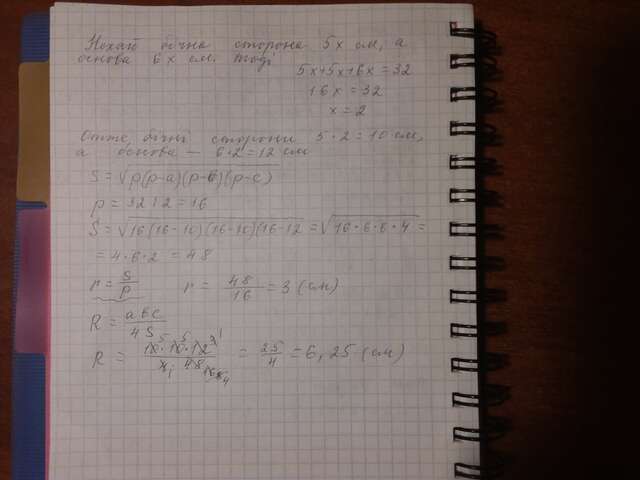 Нехай бічна сторона 5x см, а
основа 6x см, тоді
5x+5x+6x=32
16x=32
x=2
Отже, бічні сторони 5·2=10 см,
а основа – 6·2=12 см
S=√p(p-a)(p-b)(p-c)
p=32:2=16
S=√16(16-10)(16-10)(16-12=√16·6·6·4=
=4·6·2=48
r=S/p r=48/16=3(см)
R=abc/4S
R= =25/4=6,25(см)